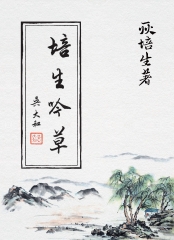 培生著
培生吟草
吳大和